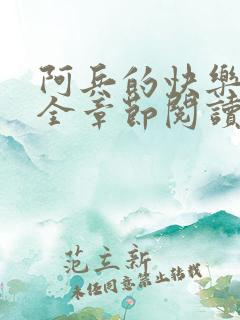 阿兵的快樂
全章節閱讀
范立新
未經同意禁止轉載